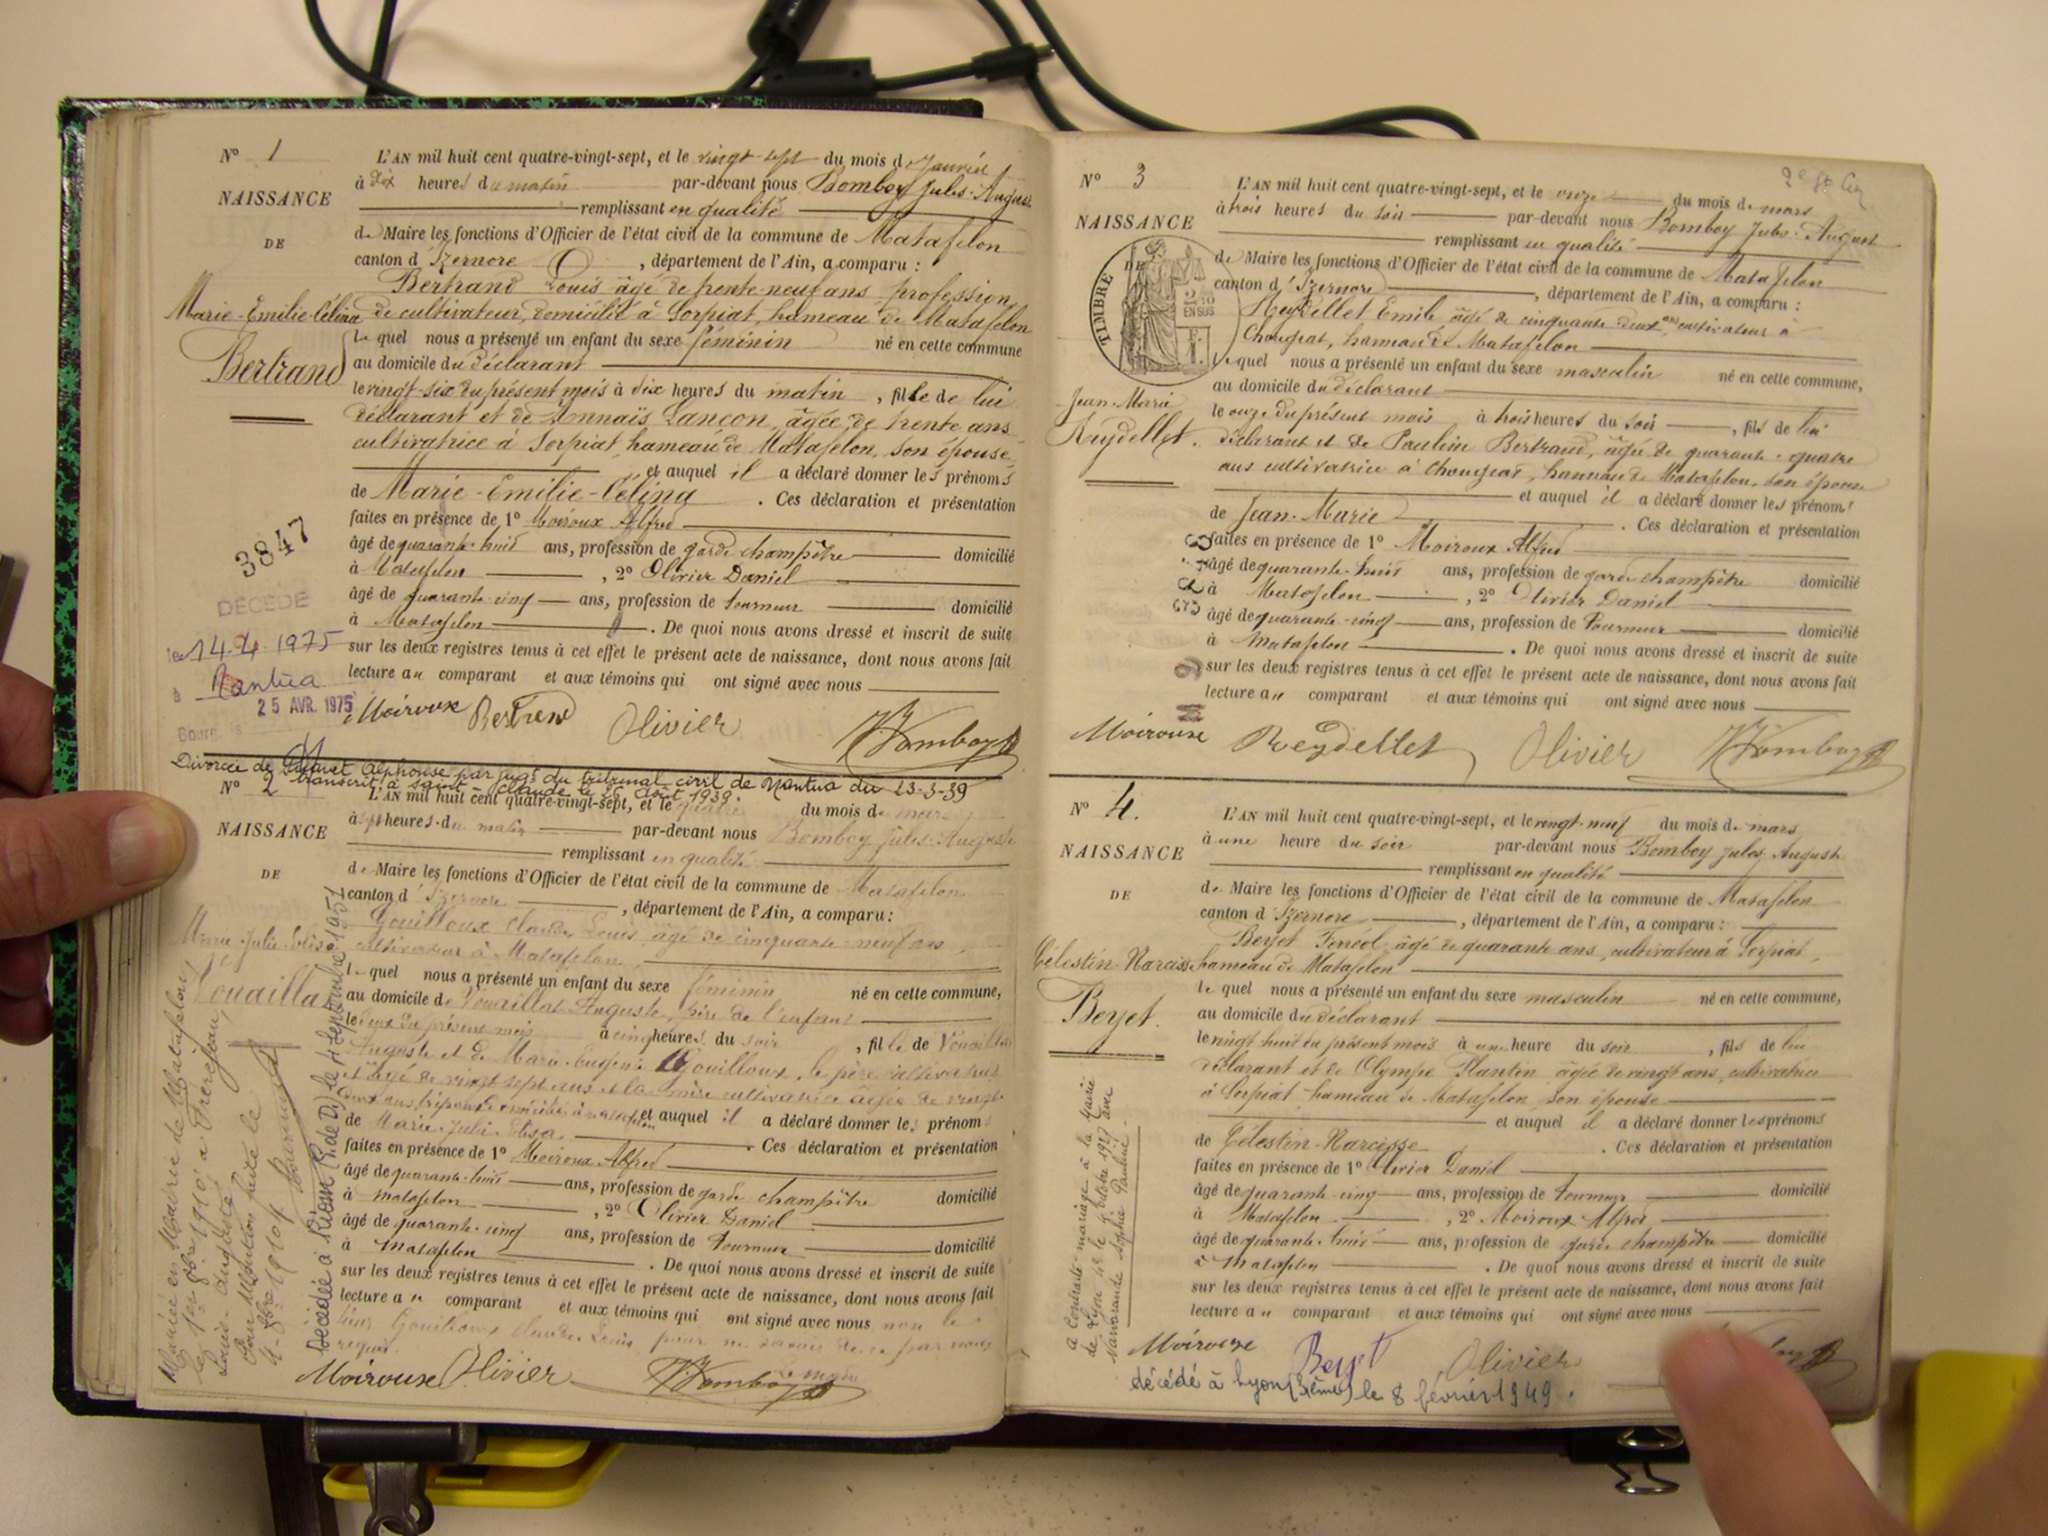 N° 1
NAISSANCE
DE
Marie-Emilie-Célina
Bertrand
3847
DÉCÉDÉ
le 14.4.1975
à Nantua
25 AVR. 1975
L'AN mil huit cent quatre-vingt-sept, et le vingt-sept du mois de Janvier
à dix heures du matin par-devant nous Bomboy Jules-Auguste
remplissant en qualité
de Maire les fonctions d'Officier de l'état civil de la commune de Matafelon
canton d'Izernore, département de l'Ain, a comparu :
Bertrand Louis âgé de trente-neuf ans, profession
de cultivateur, domicilié à Sorpiat, hameau de Matafelon
lequel nous a présenté un enfant du sexe féminin né en cette commune
au domicile du déclarant
le vingt-six du présent mois à dix heures du matin, fille de lui
déclarant et de Annaïs Lançon, âgée de trente ans
cultivatrice à Sorpiat hameau de Matafelon, son épouse
et auquel il a déclaré donner les prénoms
de Marie-Emilie-Célina. Ces déclaration et présentation
faites en présence de 1° Moiroux Alfred
âgé de quarante-huit ans, profession de garde champêtre domicilié
à Matafelon, 2° Olivier Daniel
âgé de quarante-cinq ans, profession de tourneur domicilié
à Matafelon. De quoi nous avons dressé et inscrit de suite
sur les deux registres tenus à cet effet le présent acte de naissance, dont nous avons fait
lecture au comparant et aux témoins qui ont signé avec nous
Moiroux Bertrand Olivier Bomboy
Divorcée de Alphonse par jugt du tribunal civil de Nantua du 23-3-39
transcrit à Saint-Claude le 26 Août 1939.
N° 2
NAISSANCE
DE
Marie-Julie-Elisa
Vouaillat
Mariée en Mairie de Matafelon
le 1er 1910 à
Louis Auguste
Pour mention faite le
4 1910
Décédée à Riom (P. de D) le 11 Septembre 1951
L'AN mil huit cent quatre-vingt-sept, et le quatre du mois de mars
à sept heures du matin par-devant nous Bomboy Jules-Auguste
remplissant en qualité
de Maire les fonctions d'Officier de l'état civil de la commune de Matafelon
canton d'Izernore, département de l'Ain, a comparu :
Gouilloux Claude Louis âgé de cinquante-neuf ans,
cultivateur à Matafelon
lequel nous a présenté un enfant du sexe féminin né en cette commune,
au domicile de Vouaillat Auguste, père de l'enfant
le deux du présent mois à cinq heures du soir, fille de Vouaillat
Auguste et de Marie-Eugénie Gouilloux, le père cultivateur
et âgé de vingt sept ans et la mère cultivatrice âgée de vingt
deux ans et auquel il a déclaré donner les prénoms
de Marie-Julie-Elisa. Ces déclaration et présentation
faites en présence de 1° Moiroux Alfred
âgé de quarante-huit ans, profession de garde champêtre domicilié
à Matafelon, 2° Olivier Daniel
âgé de quarante-cinq ans, profession de Tourneur domicilié
à Matafelon. De quoi nous avons dressé et inscrit de suite
sur les deux registres tenus à cet effet le présent acte de naissance, dont nous avons fait
lecture au comparant et aux témoins qui ont signé avec nous non le
sieur Gouilloux Claude Louis pour ne savoir de ce par nous
requis.
Le maire
Moiroux Olivier Bomboy
N° 3
NAISSANCE
DE
TIMBRE
2/10 EN SUS
Jean-Marie
Reydellet.
L'AN mil huit cent quatre-vingt-sept, et le onze du mois de mars
à trois heures du soir par-devant nous Bomboy Jules-Auguste
remplissant en qualité
de Maire les fonctions d'Officier de l'état civil de la commune de Matafelon
canton d'Izernore, département de l'Ain, a comparu :
Reydellet Emile âgé de cinquante deux ans cultivateur à
Chougeat, hameau de Matafelon
lequel nous a présenté un enfant du sexe masculin né en cette commune,
au domicile du déclarant
le onze du présent mois à trois heures du soir, fils de lui
déclarant et de Pauline Bertrand, âgée de quarante-quatre
ans cultivatrice à Chougeat, hameau de Matafelon, son épouse
et auquel il a déclaré donner les prénoms
de Jean-Marie. Ces déclaration et présentation
faites en présence de 1° Moiroux Alfred
âgé de quarante-huit ans, profession de garde champêtre domicilié
à Matafelon, 2° Olivier Daniel
âgé de quarante-cinq ans, profession de Tourneur domicilié
à Matafelon. De quoi nous avons dressé et inscrit de suite
sur les deux registres tenus à cet effet le présent acte de naissance, dont nous avons fait
lecture au comparant et aux témoins qui ont signé avec nous
Moiroux Reydellet Olivier Bomboy
N° 4.
NAISSANCE
DE
Célestin-Narcisse
Beyet.
a contracté mariage à la Mairie
de Lyon le octobre 1917 avec
Sophie Pauline
L'AN mil huit cent quatre-vingt-sept, et le vingt-neuf du mois de mars
à une heure du soir par-devant nous Bomboy Jules-Auguste
remplissant en qualité
de Maire les fonctions d'Officier de l'état civil de la commune de Matafelon
canton d'Izernore, département de l'Ain, a comparu :
Beyet Ferréol, âgé de quarante ans, cultivateur à Sorpiat,
hameau de Matafelon
lequel nous a présenté un enfant du sexe masculin né en cette commune,
au domicile du déclarant
le vingt huit du présent mois à une heure du soir, fils de lui
déclarant et de Olympe Plantin âgée de vingt ans, cultivatrice
à Sorpiat hameau de Matafelon, son épouse
et auquel il a déclaré donner les prénoms
de Célestin-Narcisse. Ces déclaration et présentation
faites en présence de 1° Olivier Daniel
âgé de quarante-cinq ans, profession de Tourneur domicilié
à Matafelon, 2° Moiroux Alfred
âgé de quarante-huit ans, profession de garde champêtre domicilié
à Matafelon. De quoi nous avons dressé et inscrit de suite
sur les deux registres tenus à cet effet le présent acte de naissance, dont nous avons fait
lecture au comparant et aux témoins qui ont signé avec nous
Moiroux Beyet Olivier
décédé à Lyon (3ème) le 8 février 1949.